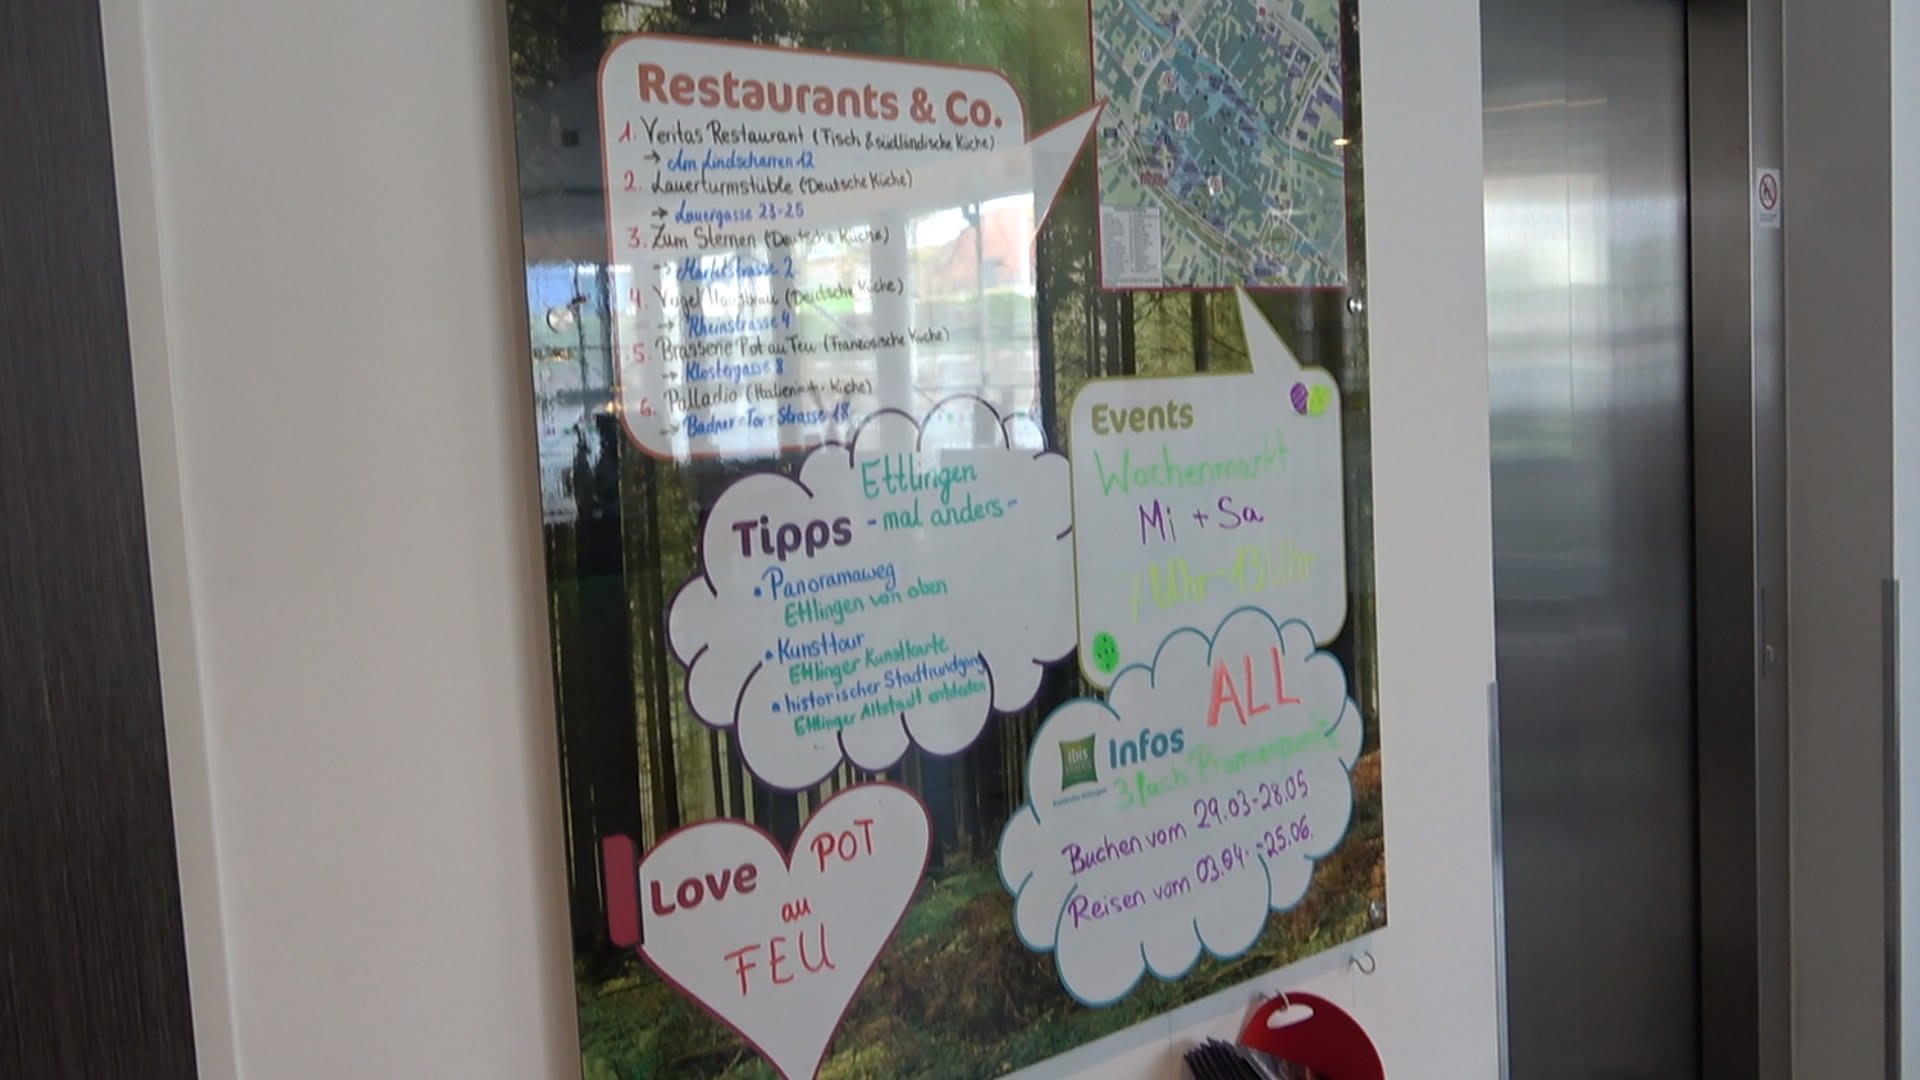 Restaurants & Co.
1. Veritas Restaurant (Fisch & südländische Küche)
→ Am Lindscharren 12
2. Lauerturmstüble (Deutsche Küche)
→ Lauergasse 23-25
3. Zum Sternen (Deutsche Küche)
→ Marktstrasse 2
4. Vogel Hausbräu (Deutsche Küche)
→ Rheinstrasse 4
5. Brasserie Pot au Feu (Französische Küche)
→ Klostergasse 8
6. Palladio (Küche)
→ Badner-Tor-Strasse 18
Ettlingen
- mal anders -
Tipps
• Panoramaweg
Ettlingen von oben
• Kunsttour
Ettlinger Kunstkarte
• historischer Stadtrundgang
Ettlinger Altstadt entdecken
Events
Wochenmarkt
Mi + Sa
7 Uhr - 13 Uhr
ALL
ibis
Infos
3fach Prämienpunkte
Buchen vom 29.03-28.05
Reisen vom 03.04. - 25.06.
Love
POT
au
FEU